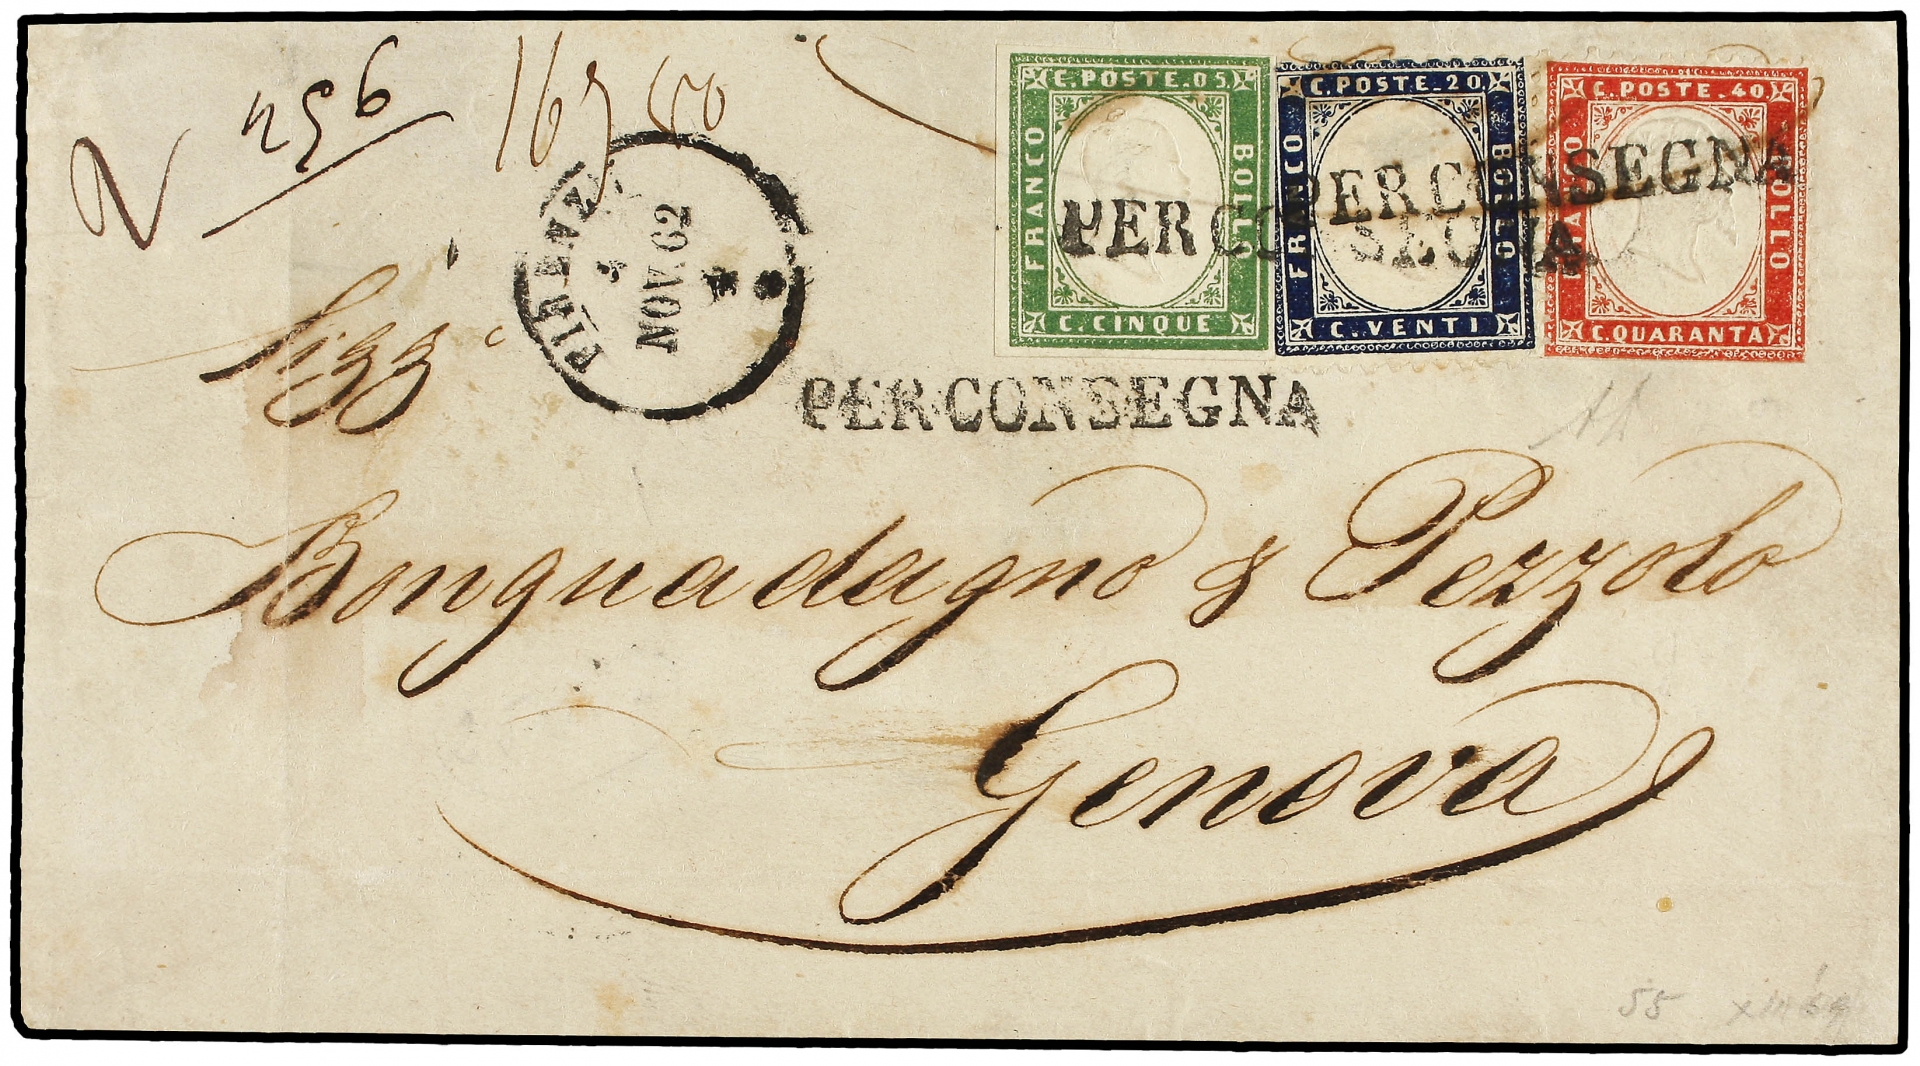 N 296
16 80
C. POSTE. 05.
FRANCO
BOLLO
C. CINQUE
C. POSTE. 20.
FRANCO
BOLLO
C. VENTI
C. POSTE. 40
FRANCO
BOLLO
C. QUARANTA
PER CONSEGNA
PER CONSEGNA
FIRENZE
NOV. 62
PER CONSEGNA
Sigg.i
Bonguadagno & Pezzolo
Genova
55